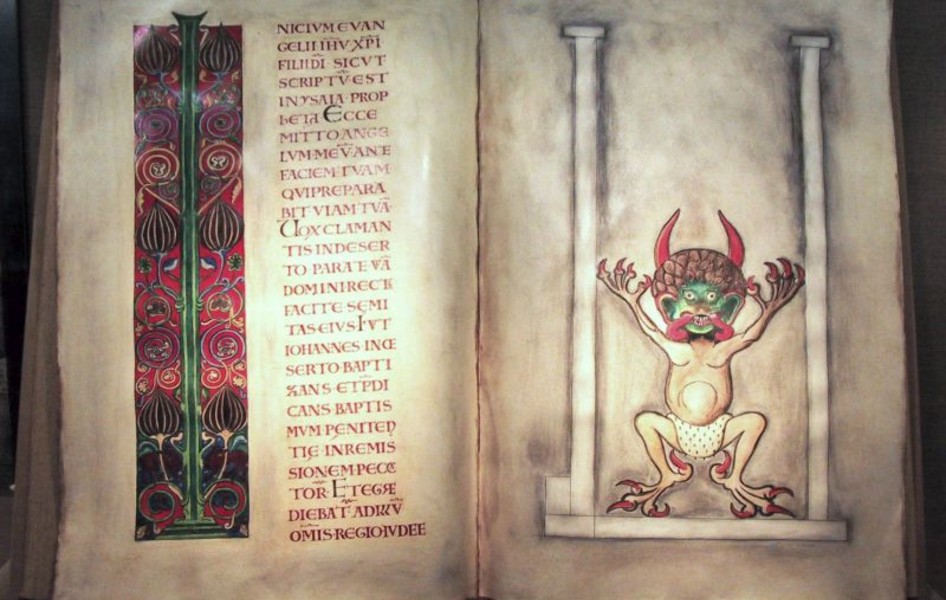 NICIVM EVAN
GELII IHV XPI
FILII DI SICVT
SCRIPTV EST
IN YSAIA PROP
hETA ECCE
MITTO ANGE
LVM MEV ANTE
FACIEM TVAM
QVI PREPARA
BIT VIAM TVA
UOX CLAMAN
TIS IN DESER
TO PARATE VIA
DOMINI RECT
FACITE SEMI
TAS EIVS FVT
IOHANNES IN DE
SERTO BAPTI
ZANS ET PDI
CANS BAPTIS
MVM PENITEN
TIE IN REMIS
SIONEM PECC
TOR ET EGRE
DIEBAT AD
OMIS REGIO IVDEE